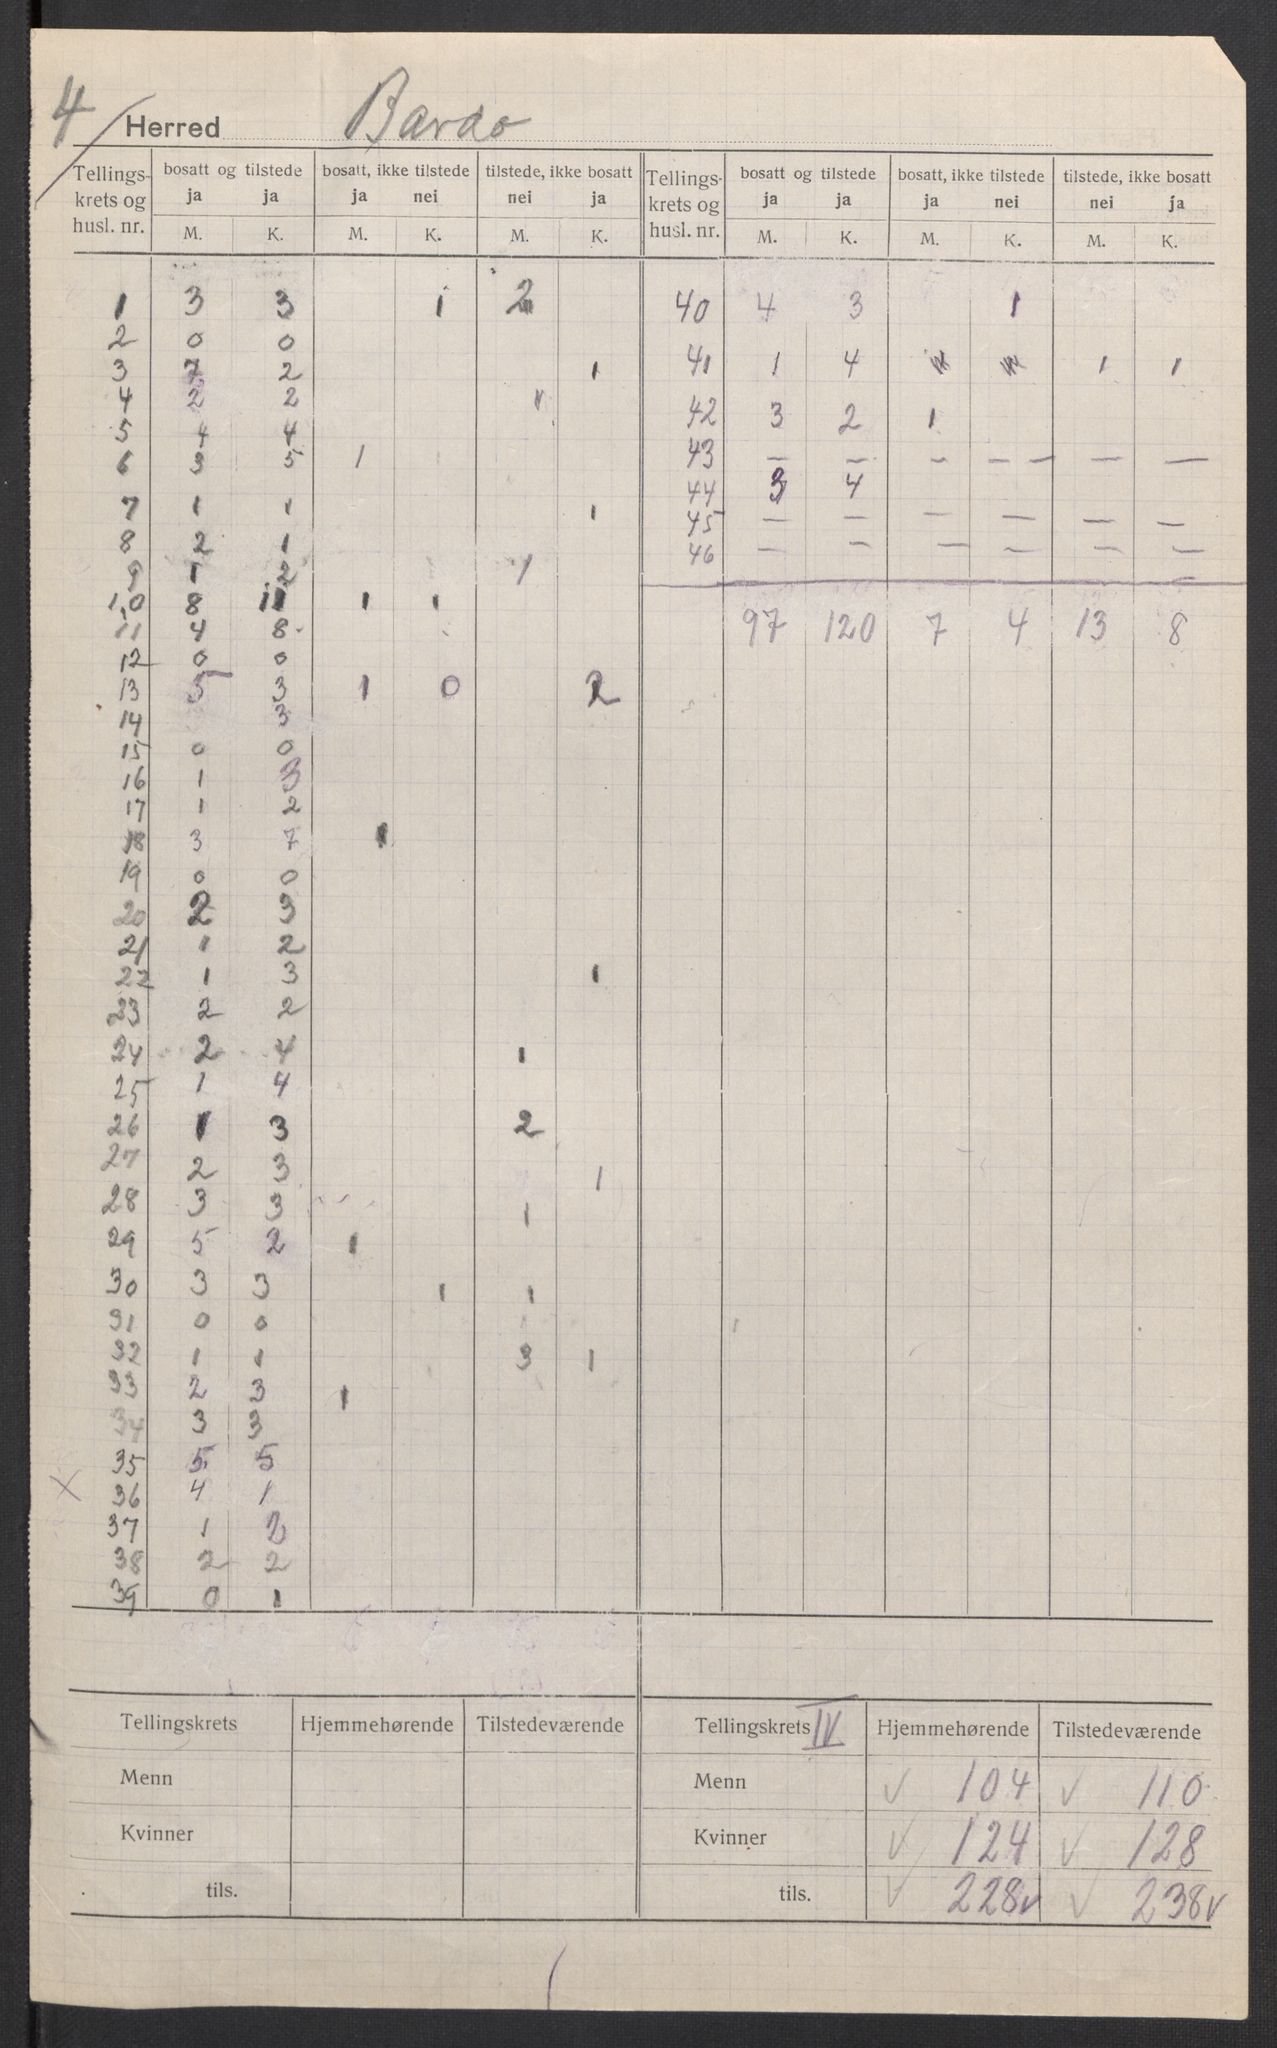 4 Herred Bardo
Tellings- krets og husl. nr. | bosatt og tilstede ja ja M. K. | bosatt, ikke tilstede ja nei M. K. | tilstede, ikke bosatt nei ja M. K. | Tellings- krets og husl. nr. | bosatt og tilstede ja ja M. K. | bosatt, ikke tilstede ja nei M. K. | tilstede, ikke bosatt nei ja M. K.
1 3 3 1 2
2 0 0
3 7 2 1
4 2 2
5 4 4
6 3 5 1
7 1 1 1
8 2 1
9 1 2 1
10 8 11 1 1
11 4 8
12 0 0
13 5 3 1 0 2
14 3
15 0 0
16 1 3
17 1 2
18 3 7 1
19 0 0
20 2 3
21 1 2
22 1 3 1
23 2 2
24 2 4 1
25 1 4
26 1 3 2
27 2 3 1
28 3 3 1
29 5 2 1
30 3 3 1 1
31 0 0
32 1 1 3 1
33 2 3 1
34 3 3
35 5 5
X 36 4 1
37 1 2
38 2 2
39 0 1
40 4 3 1
41 1 4 1 1
42 3 2 1
43 — — — — — — —
44 3 4
45 — — — — — —
46 — — — — — —
97 120 7 4 13 8
Tellingskrets Hjemmehørende Tilstedeværende
Menn
Kvinner
tils.
Tellingskrets IV Hjemmehørende Tilstedeværende
Menn ✓ 104 ✓ 110
Kvinner ✓ 124 ✓ 128
tils. ✓ 228 ✓ ✓ 238 ✓